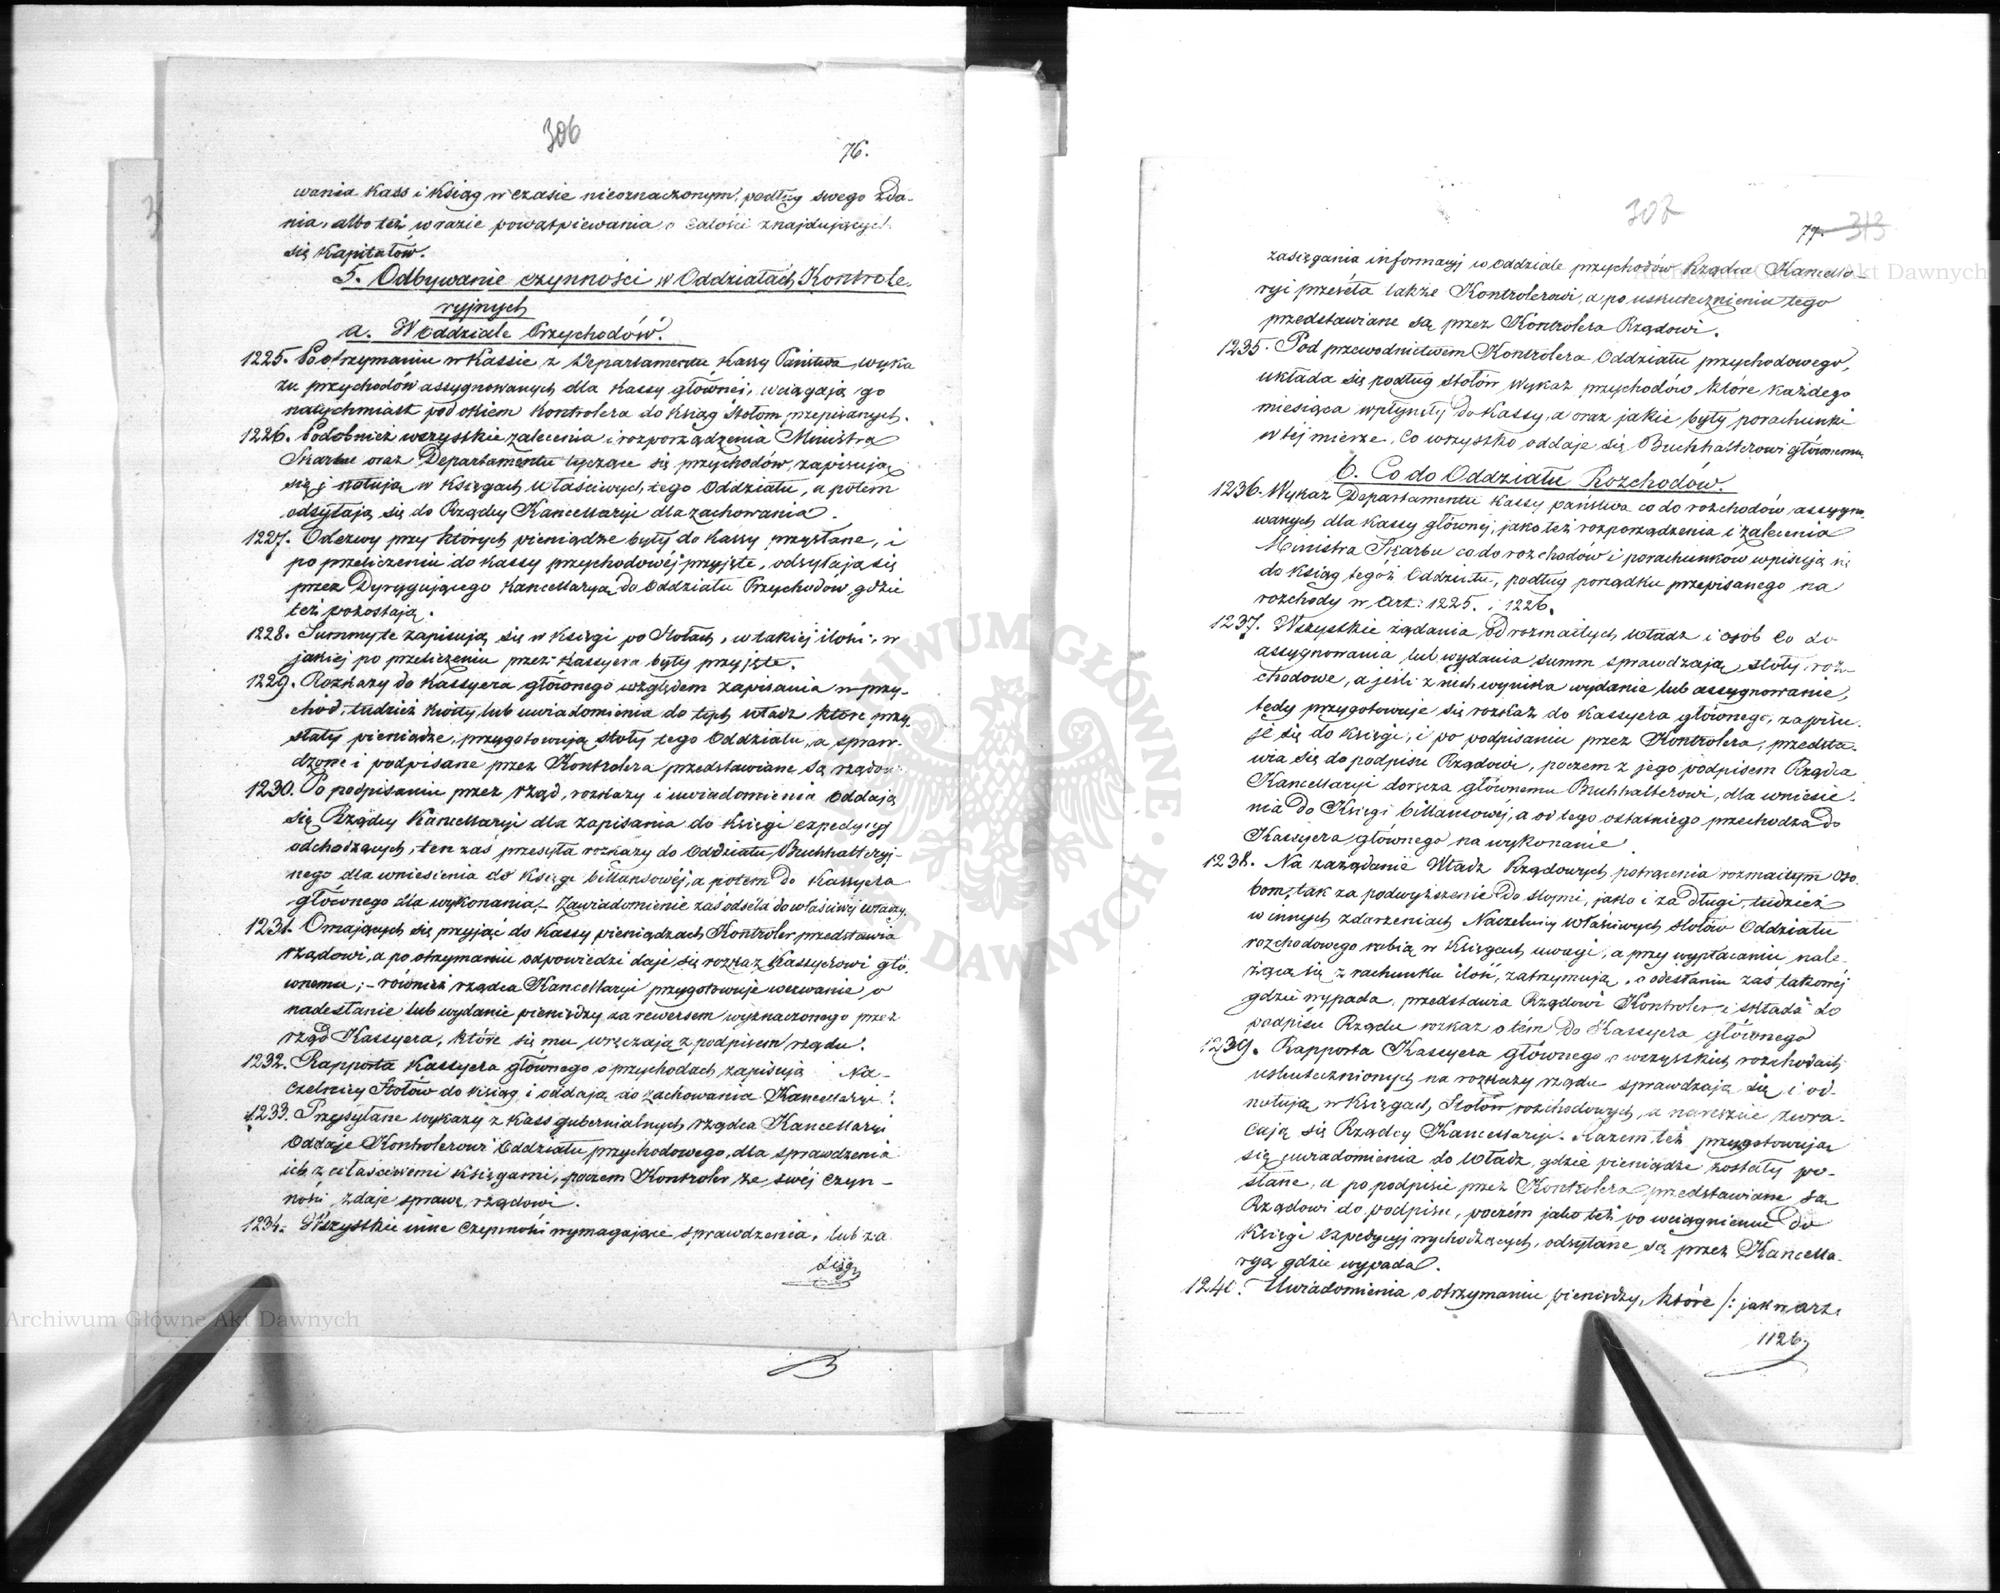 306
76.
wania Kass i Ksiąg w czasie nieoznaczonym, podług swego zda-
nia, albo też w razie powątpiewania o całości znajdujących
się Kapitałów.
5. Odbywanie czynności w Oddziałach Kontrole-
ryjnych
a. W oddziale Przychodów.
1225. Po otrzymaniu w Kassie z Departamentu Kassy Państwa, wyka
zu przychodów assygnowanych dla Kassy głównej, wciągają go
natychmiast pod okiem Kontrolera do Ksiąg Stołom przepisanych.
1226. Podobnież wszystkie zalecenia i rozporządzenia Ministra
Skarbu oraz Departamentu tyczące się przychodów, zapisują
się i notują w Księgach właściwych tego Oddziału, a potem
odsyłają się do Rządcy Kancellaryi dla zachowania.
1227. Odezwy przy których pieniądze były do Kassy przysłane, i
po przeliczeniu do Kassy przychodowej przyjęte, odsyłają się
przez Dyrygującego Kancellaryą do Oddziału Przychodów, gdzie
też pozostają.
1228. Summy te zapisują się w Księgi po Stołach, w takiej ilości, w
jakiej po przeliczeniu przez Kassyera były przyjęte.
1229. Rozkazy do Kassyera głównego względem zapisania w przy-
chód, tudzież kwity lub uwiadomienia do tych władz które przy
słały pieniądze, przygotowują stoły tego Oddziału, a spraw-
dzone i podpisane przez Kontrolera przedstawiane są rządowi
1230. Po podpisaniu przez rząd, rozkazy i uwiadomienia oddają
się Rządcy Kancellaryi dla zapisania do Księgi expedycyj
odchodzących, ten zaś przesyła rozkazy do Oddziału Buchhalteryj-
nego dla wniesienia do Księgi billansowéj, a potem do Kassyera
głównego dla wykonania,- Zawiadomienie zaś odseła do właściwej władzy.
1231. O mających się przyjąć do Kassy pieniądzach Kontroler przedstawia
rządowi, a po otrzymaniu odpowiedzi daje się rozkaz Kassyerowi głó-
wnemu;- również rządca Kancellaryi przygotowuje wezwanie o
nadesłanie lub wydanie pieniędzy za rewersem wyznaczonego przez
rząd Kassyera, które się mu wręczają z podpisem rządu.
1232. Rapporta Kassyera głównego o przychodach zapisują Na-
czelnicy Stołów do ksiąg i oddają do zachowania Kancellaryi.
1233. Przysyłane wykazy z Kass gubernialnych rządca Kancellaryi
oddaje Kontrolerowi Oddziału przychodowego, dla sprawdzenia
ich z właściwemi księgami, poczem Kontroler ze swéj czyn-
ności zdaje sprawę rządowi.
1234. Wszystkie inne czynności wymagające sprawdzenia, lub za
307
77. 313
zasięgania informacyj w oddziale przychodów Rządca Kancella-
ryi przeséła także Kontrolerowi, a po uskutecznieniu tego
przedstawiane są przez Kontrolera Rządowi.
1235. Pod przewodnictwem Kontrolera Oddziału przychodowego,
układa się podług stołów wykaz przychodów które każdego
miesiąca wpłynęły do Kassy, a oraz jakie były porachunki
w tej mierze, co wszystko oddaje się Buchhalterowi głównemu
b. Co do Oddziału Rozchodów.
1236. Wykaz Departamentu Kassy państwa co do rozchodów assygno-
wanych dla Kassy głównej, jako też rozporządzenia i zalecenia
Ministra Skarbu co do rozchodów i porachunków wpisują się
do Ksiąg tegoż Oddziału, podług porządku przepisanego na
rozchody w Art: 1225. i 1226.
1237. Wszystkie żądania od rozmaitych władz i osób co do
assygnowania lub wydania summ sprawdzają stoły roz-
chodowe, a jeśli z nich wynika wydanie lub assygnowanie,
tedy przygotowuje się rozkaz do Kassyera głównego, zapisu-
je się do księgi, i po podpisaniu przez Kontrolera, przedsta-
wia się do podpisu Rządowi, poczem z jego podpisem Rządca
Kancellaryi doręcza głównemu Buchhalterowi, dla wniesie-
nia do Księgi billansowéj, a od tego ostatniego przechodzą do
Kassyera głównego na wykonanie.
1238. Na zażądanie Władz Rządowych, potrącenia rozmaitym oso-
bom, tak za podwyższenie do stopni, jako i za długi, tudzież
w innych zdarzeniach Naczelnicy właściwych stołów Oddziału
rozchodowego robią w Księgach uwagi, a przy wypłacaniu nale-
żącą się z rachunku ilość, zatrzymują, o odesłaniu zaś takowej
gdzie wypada, przedstawia Rządowi Kontroler, i składa do
podpisu Rządu rozkaz o tém do Kassyera głównego
1239. Rapporta Kassyera głównego o wszystkich rozchodach
uskutecznionych na rozkazy rządu sprawdzają się i od-
notują w Księgach Stołów rozchodowych, a nareszcie zwra-
cają się Rządcy Kancellaryi. Razem też przygotowują
się uwiadomienia do Władz, gdzie pieniądze zostały po-
słane, a po podpisie przez Kontrolera, przedstawiane są
Rządowi do podpisu, poczém jako też po wciągnieniu do
Księgi Expedycyj wychodzących, odsyłane są przez Kancella-
ryą gdzie wypada.
Uwiadomienia o otrzymaniu pieniędzy, które /: jak w art.
1126
Archiwum Główne Akt Dawnych
ARCHIWUM GŁÓWNE AKT DAWNYCH